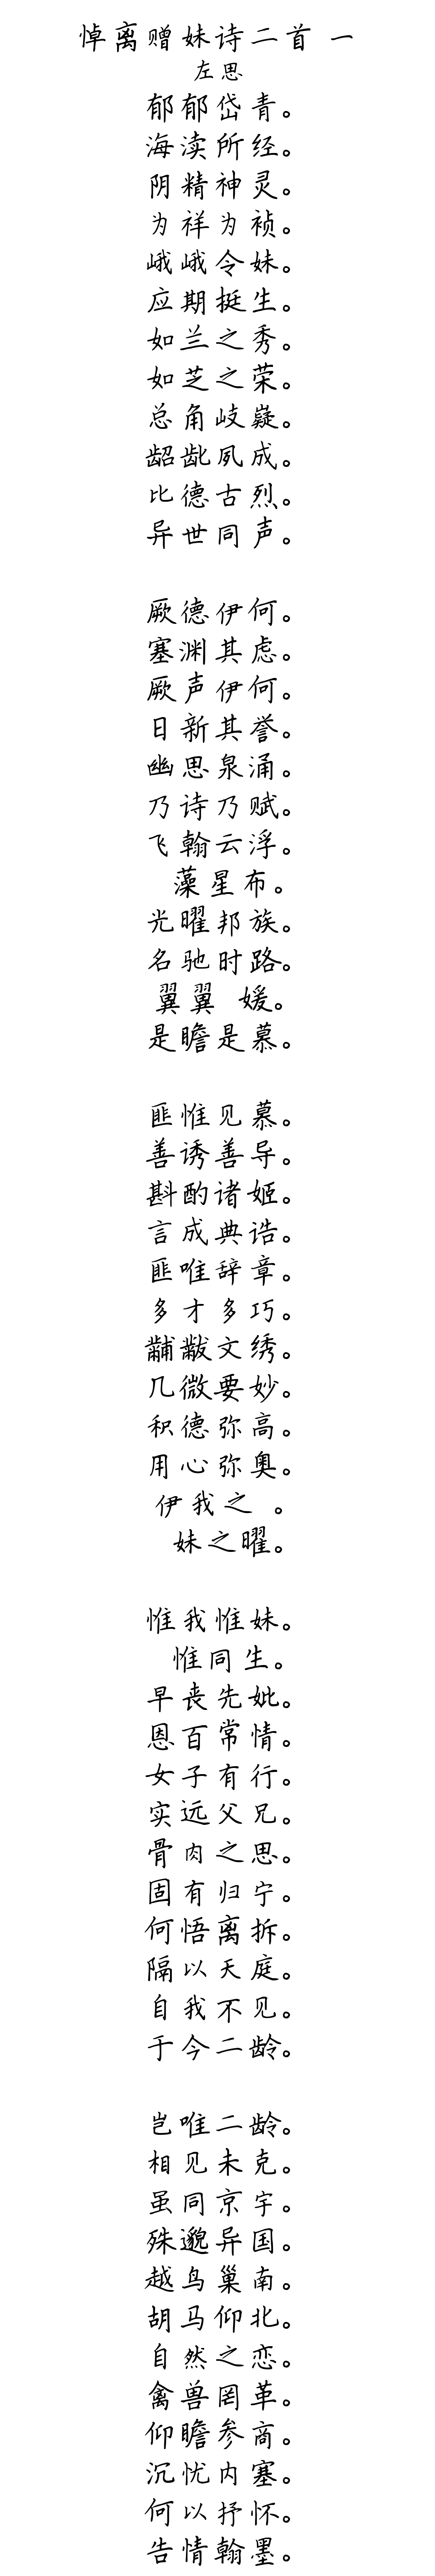 悼离赠妹诗二首 一
左思
郁郁岱青。
海渎所经。
阴精神灵。
为祥为祯。
峨峨令妹。
应期挺生。
如兰之秀。
如芝之荣。
总角岐嶷。
龆龀夙成。
比德古烈。
异世同声。
厥德伊何。
塞渊其虑。
厥声伊何。
日新其誉。
幽思泉涌。
乃诗乃赋。
飞翰云浮。
藻星布。
光曜邦族。
名驰时路。
翼翼 媛。
是瞻是慕。
匪惟见慕。
善诱善导。
斟酌诸姬。
言成典诰。
匪唯辞章。
多才多巧。
黼黻文绣。
几微要妙。
积德弥高。
用心弥奥。
伊我之 。
妹之曜。
惟我惟妹。
惟同生。
早丧先妣。
恩百常情。
女子有行。
实远父兄。
骨肉之思。
固有归宁。
何悟离拆。
隔以天庭。
自我不见。
于今二龄。
岂唯二龄。
相见未克。
虽同京宇。
殊邈异国。
越鸟巢南。
胡马仰北。
自然之恋。
禽兽罔革。
仰瞻参商。
沉忧内塞。
何以抒怀。
告情翰墨。